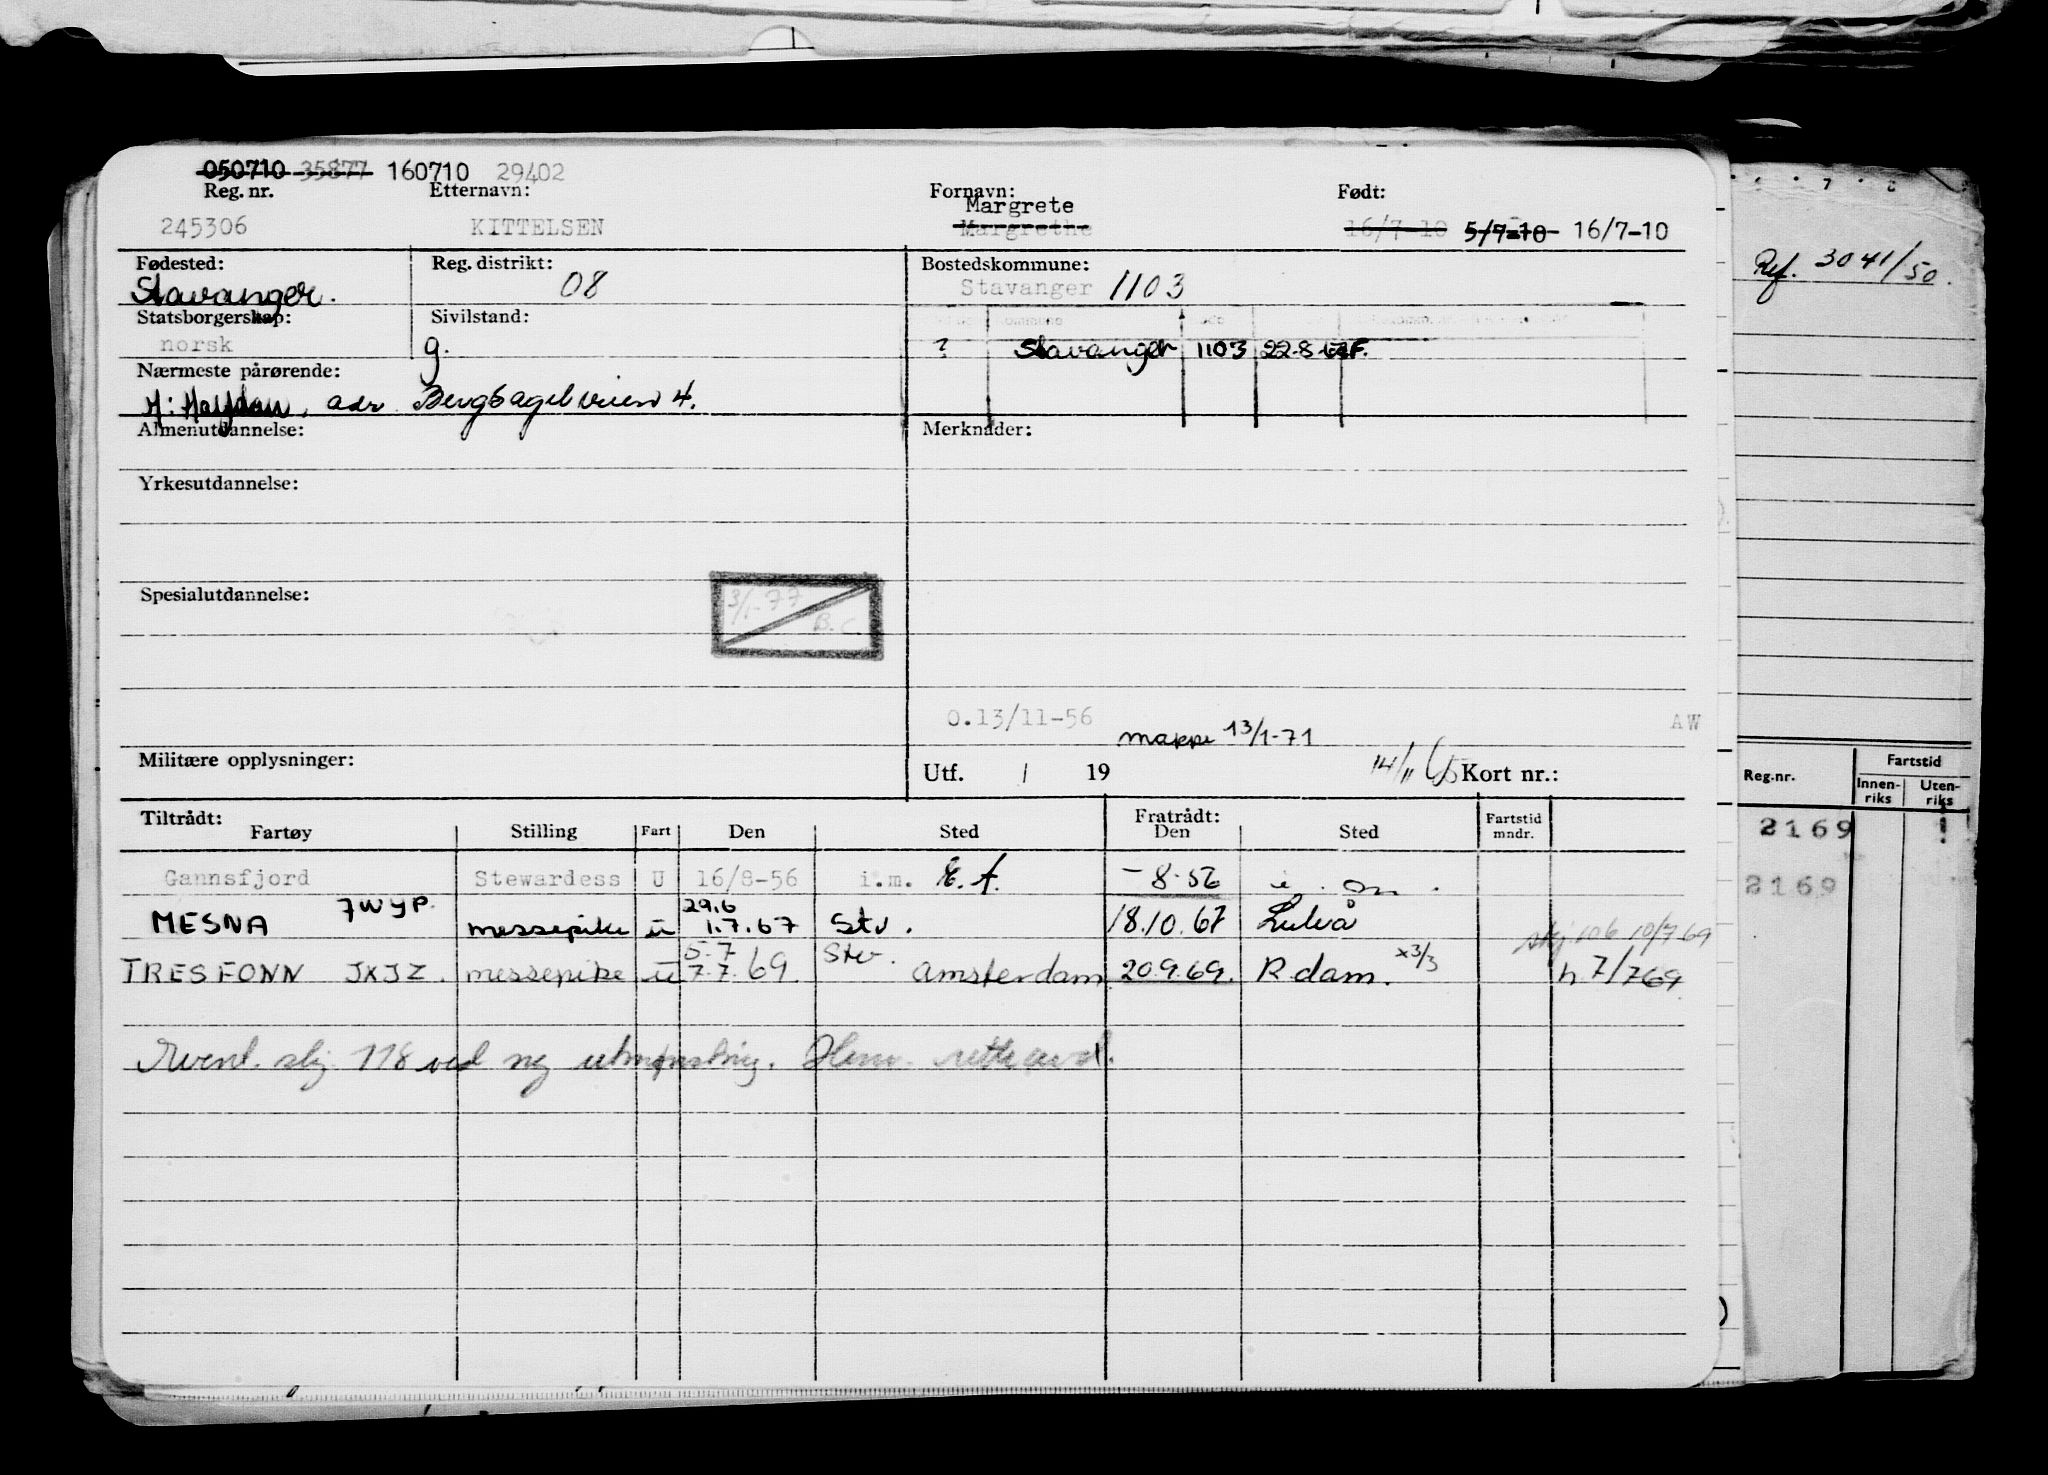 050710 35877 160710 29402
Reg. nr. Etternavn: Fornavn: Født:
Margrete
245306 KITTELSEN Margrethe 16/7-10 5/7-10 16/7-10
Fødested: Reg. distrikt: Bostedskommune:
Stavanger. 08 Stavanger 1103
Statsborgerskap: Sivilstand:
norsk g. ? Stavanger 1103 22.8
Nærmeste pårørende:
M: Halfdan, adr. 4.
Almenutdannelse: Merknader:
Yrkesutdannelse:
Spesialutdannelse:
3/1-77
B.C
0.13/11-56 AW
mappe 13/1-71
Militære opplysninger: Utf. / 19 14/11 65 Kort nr.:
Tiltrådt: Fratrådt:
Fartøy Stilling Fart Den Sted Den Sted Fartstid mndr.
Gannsfjord Stewardess U 16/8-56 i.m. - 8.56
MESNA messepike u 29.6 1.7.67 Stv. 18.10.67 Luleå
TRESFONN JXJZ. messepike u 5.7 7.7.69 Stv. Amsterdam 20.9.69. R.dam. x3/3 h 7/7 69
skj. 106 10/7 69
Event. skj. 118 ved ny utmønstring.
Ref. 3041/50.
Reg.nr. Fartstid
Innenriks Utenriks
2169
2169